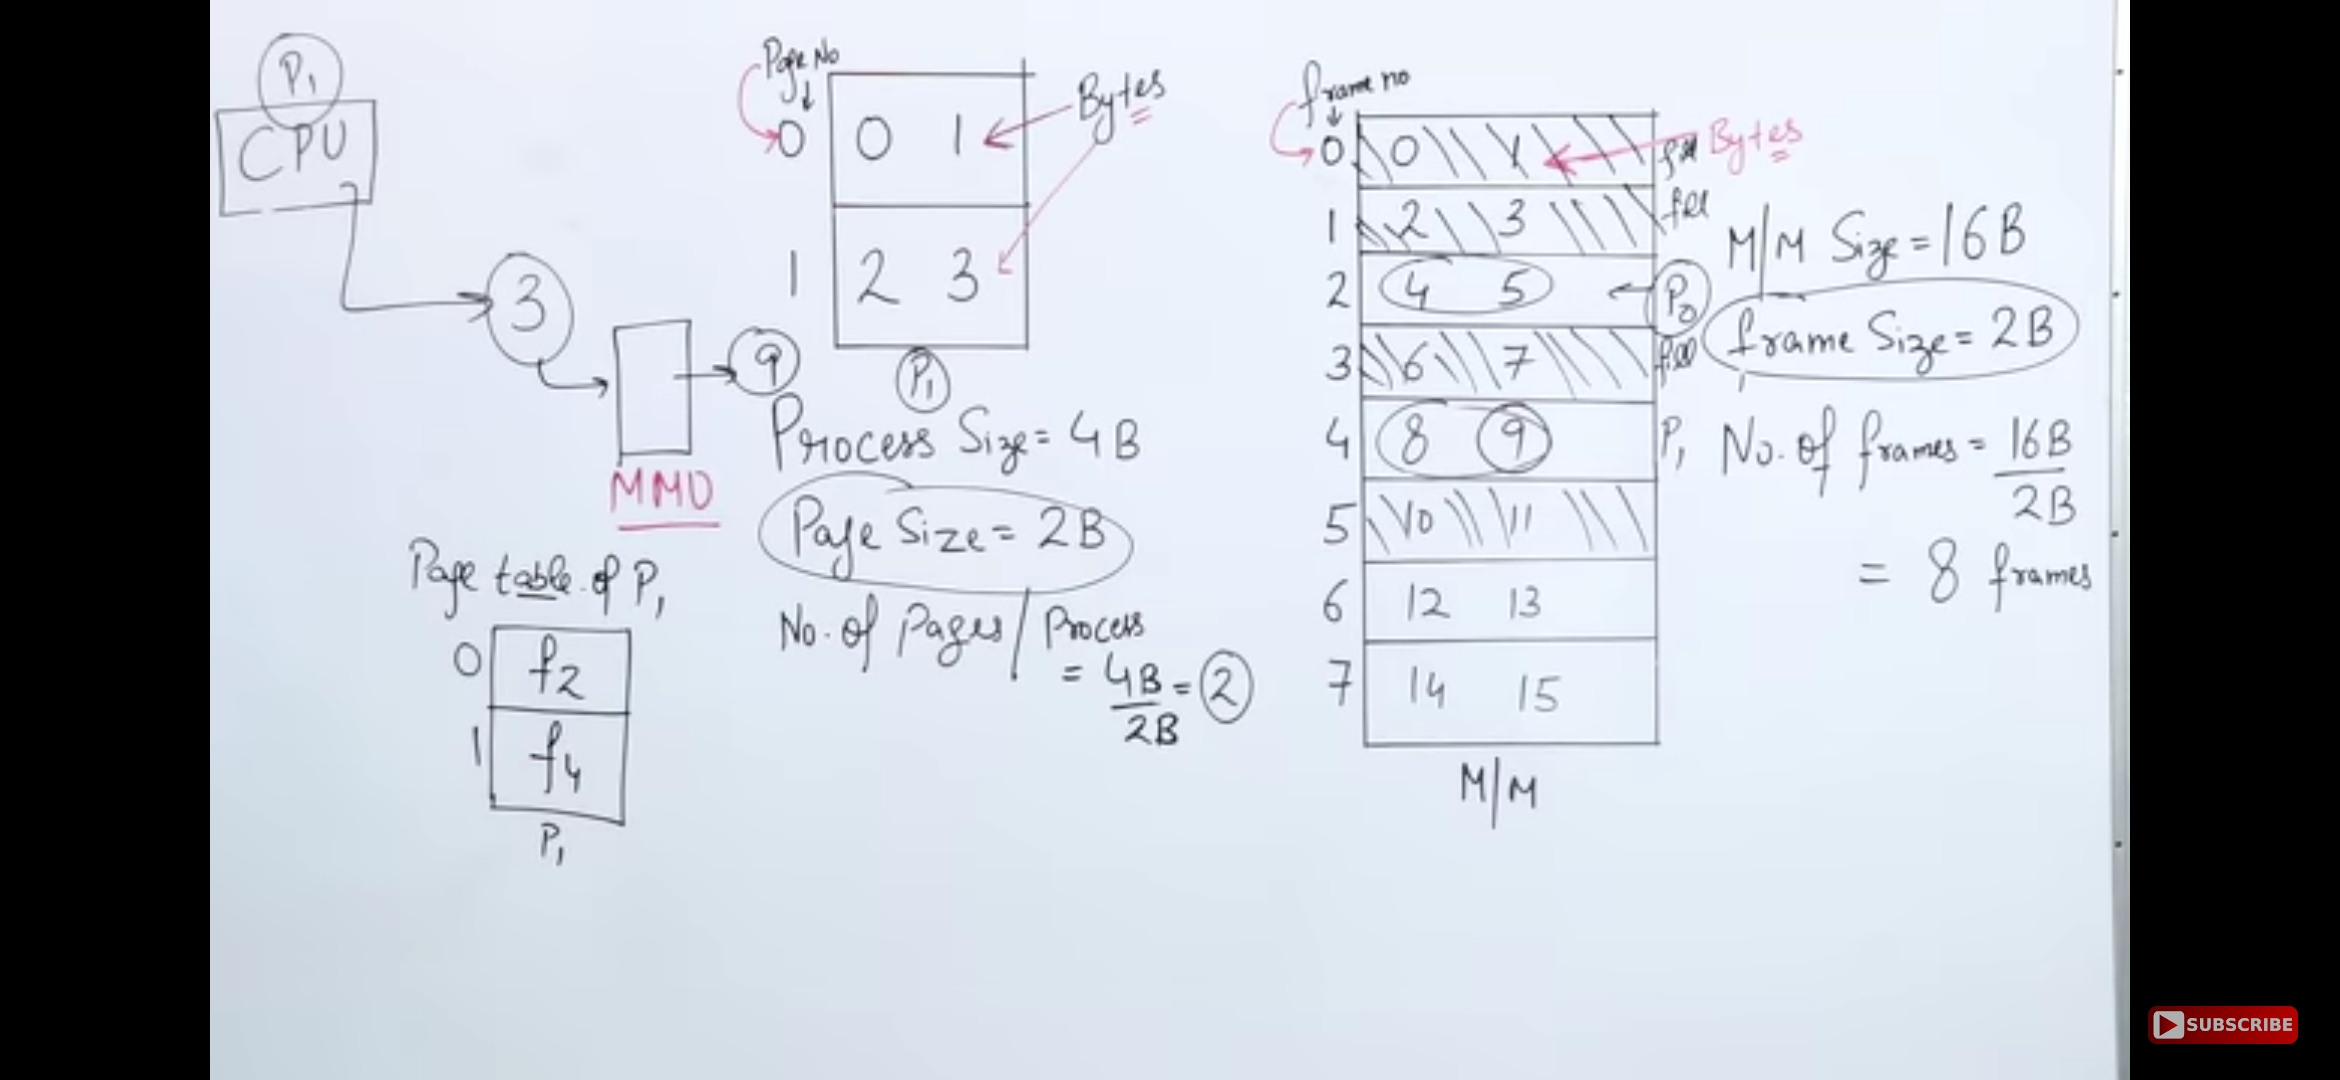 P1
CPU
3
9
MMU
Page table of P1
0 f2
1 f4
P1
Page No
0 0 1
1 2 3
Bytes
P1
Process Size = 4B
Page Size = 2B
No. of Pages / Process
= 4B = 2
2B
frame no
0 0 1
1 2 3 fill
2 4 5 P0
3 6 7 fill
4 8 9 P1
5 10 11
6 12 13
7 14 15
M/M
Bytes
M/M Size = 16B
frame Size = 2B
No. of frames = 16B
2B
= 8 frames
SUBSCRIBE